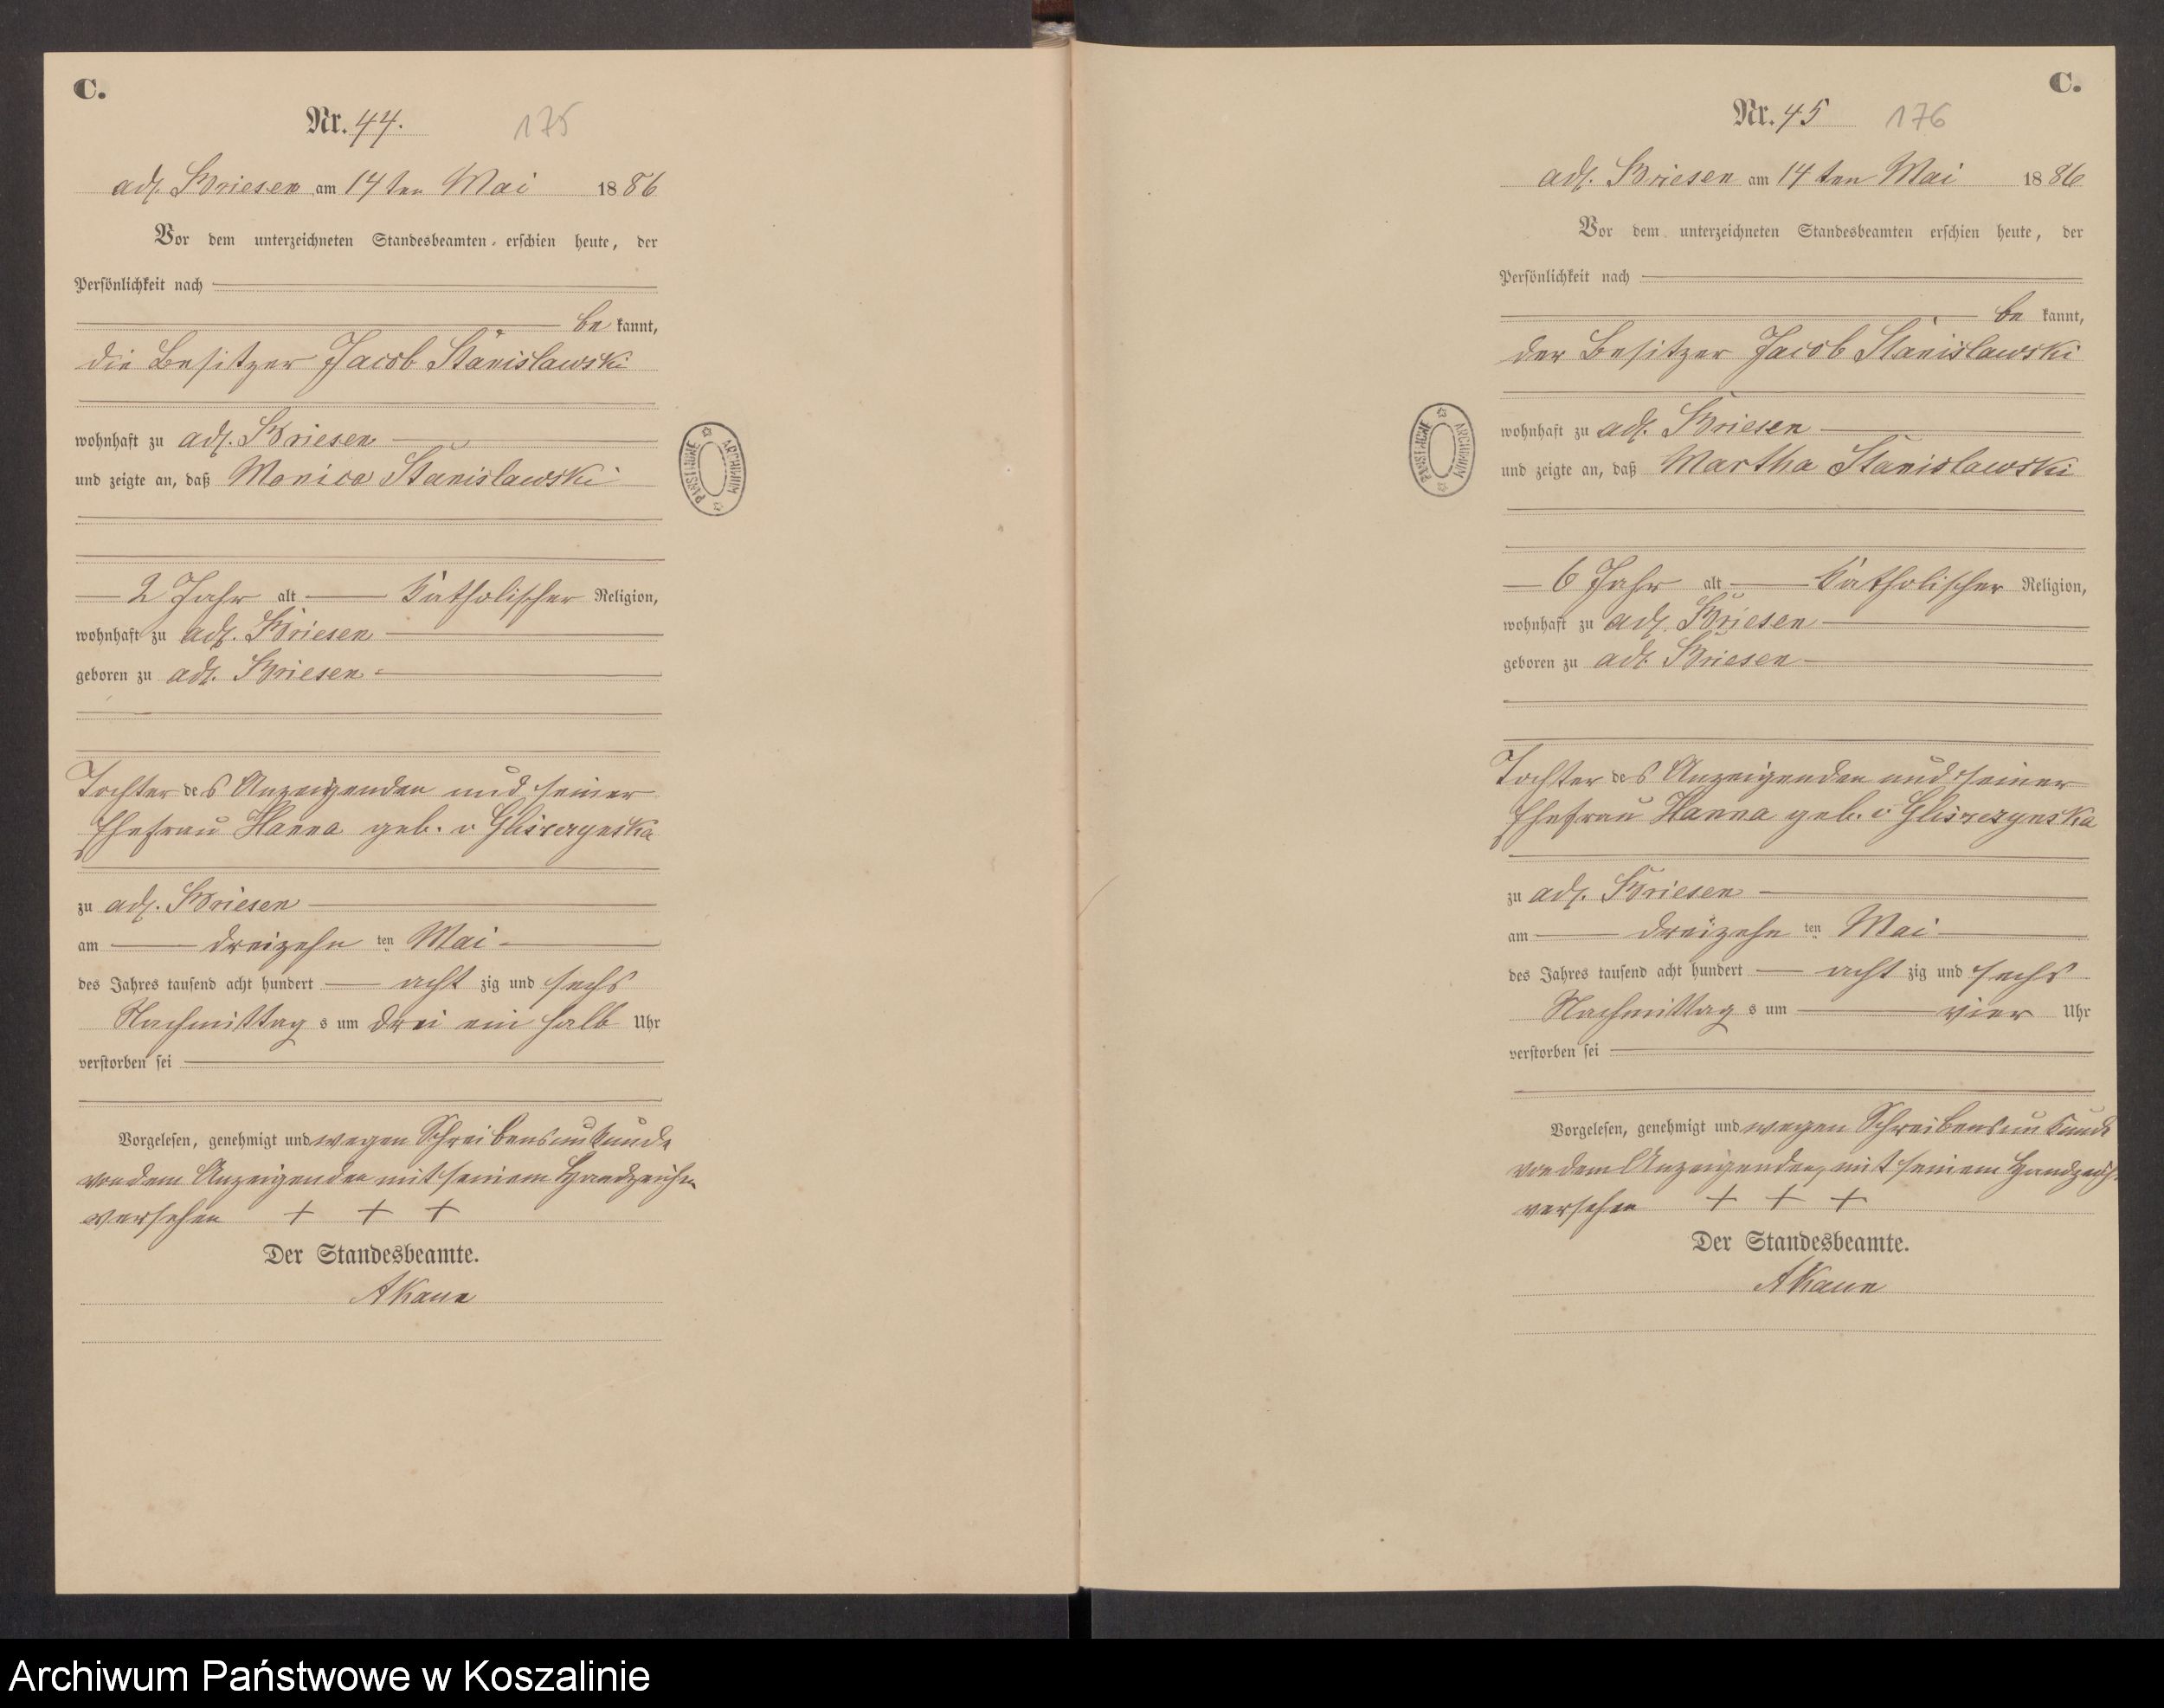 C.
Nr. 44.
175
adl. Briesen am 14ten Mai 1886
Vor dem unterzeichneten Standesbeamten erschien heute, der
Persönlichkeit nach
be kannt,
die Besitzer Jacob Stanislawski
wohnhaft zu adl. Briesen
und zeigte an, daß Monica Stanislawski
2 Jahr alt Katholischer Religion,
wohnhaft zu adl. Briesen
geboren zu adl. Briesen
Tochter des Anzeigenden und seiner
Ehefrau Hanna geb. v Gliszczynska
zu adl. Briesen
am dreizehn ten Mai
des Jahres tausend acht hundert acht zig und sechs
Nachmittag s um drei ein halb Uhr
verstorben sei
Vorgelesen, genehmigt und wegen Schreibensunkunde
von dem Anzeigenden mit seinem Handzeichen
versehen + + +
Der Standesbeamte.
PAŃSTWOWE ARCHIWUM
C.
Nr. 45
176
adl. Briesen am 14ten Mai 1886
Vor dem unterzeichneten Standesbeamten erschien heute, der
Persönlichkeit nach
be kannt,
der Besitzer Jacob Stanislawski
wohnhaft zu adl. Briesen
und zeigte an, daß Martha Stanislawski
6 Jahr alt Katholischer Religion,
wohnhaft zu adl. Briesen
geboren zu adl. Briesen
Tochter des Anzeigenden und seiner
Ehefrau Hanna geb. v Gliszczynska
zu adl. Briesen
am dreizehn ten Mai
des Jahres tausend acht hundert acht zig und sechs
Nachmittag s um vier Uhr
verstorben sei
Vorgelesen, genehmigt und wegen Schreibensunkunde
von dem Anzeigenden mit seinem Handzeich.
versehen + + +
Der Standesbeamte.
PAŃSTWOWE ARCHIWUM
Archiwum Państwowe w Koszalinie